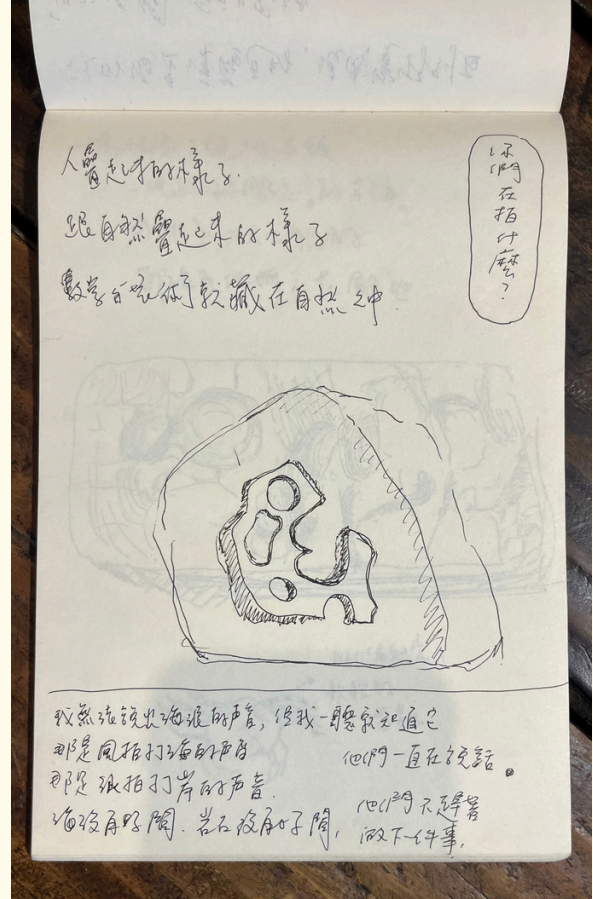 人疊起來的樣子.
跟自然疊起來的樣子
數学
就藏在自然之中.
你們在拍什麼?
我無法說出海浪的声音, 但我一聽就知道它
那是風拍打海的声音
那是浪拍打岸的声音.
海沒有時間. 岩石沒有時間,
他們一直在說話。
他們不趕著
做下一件事.